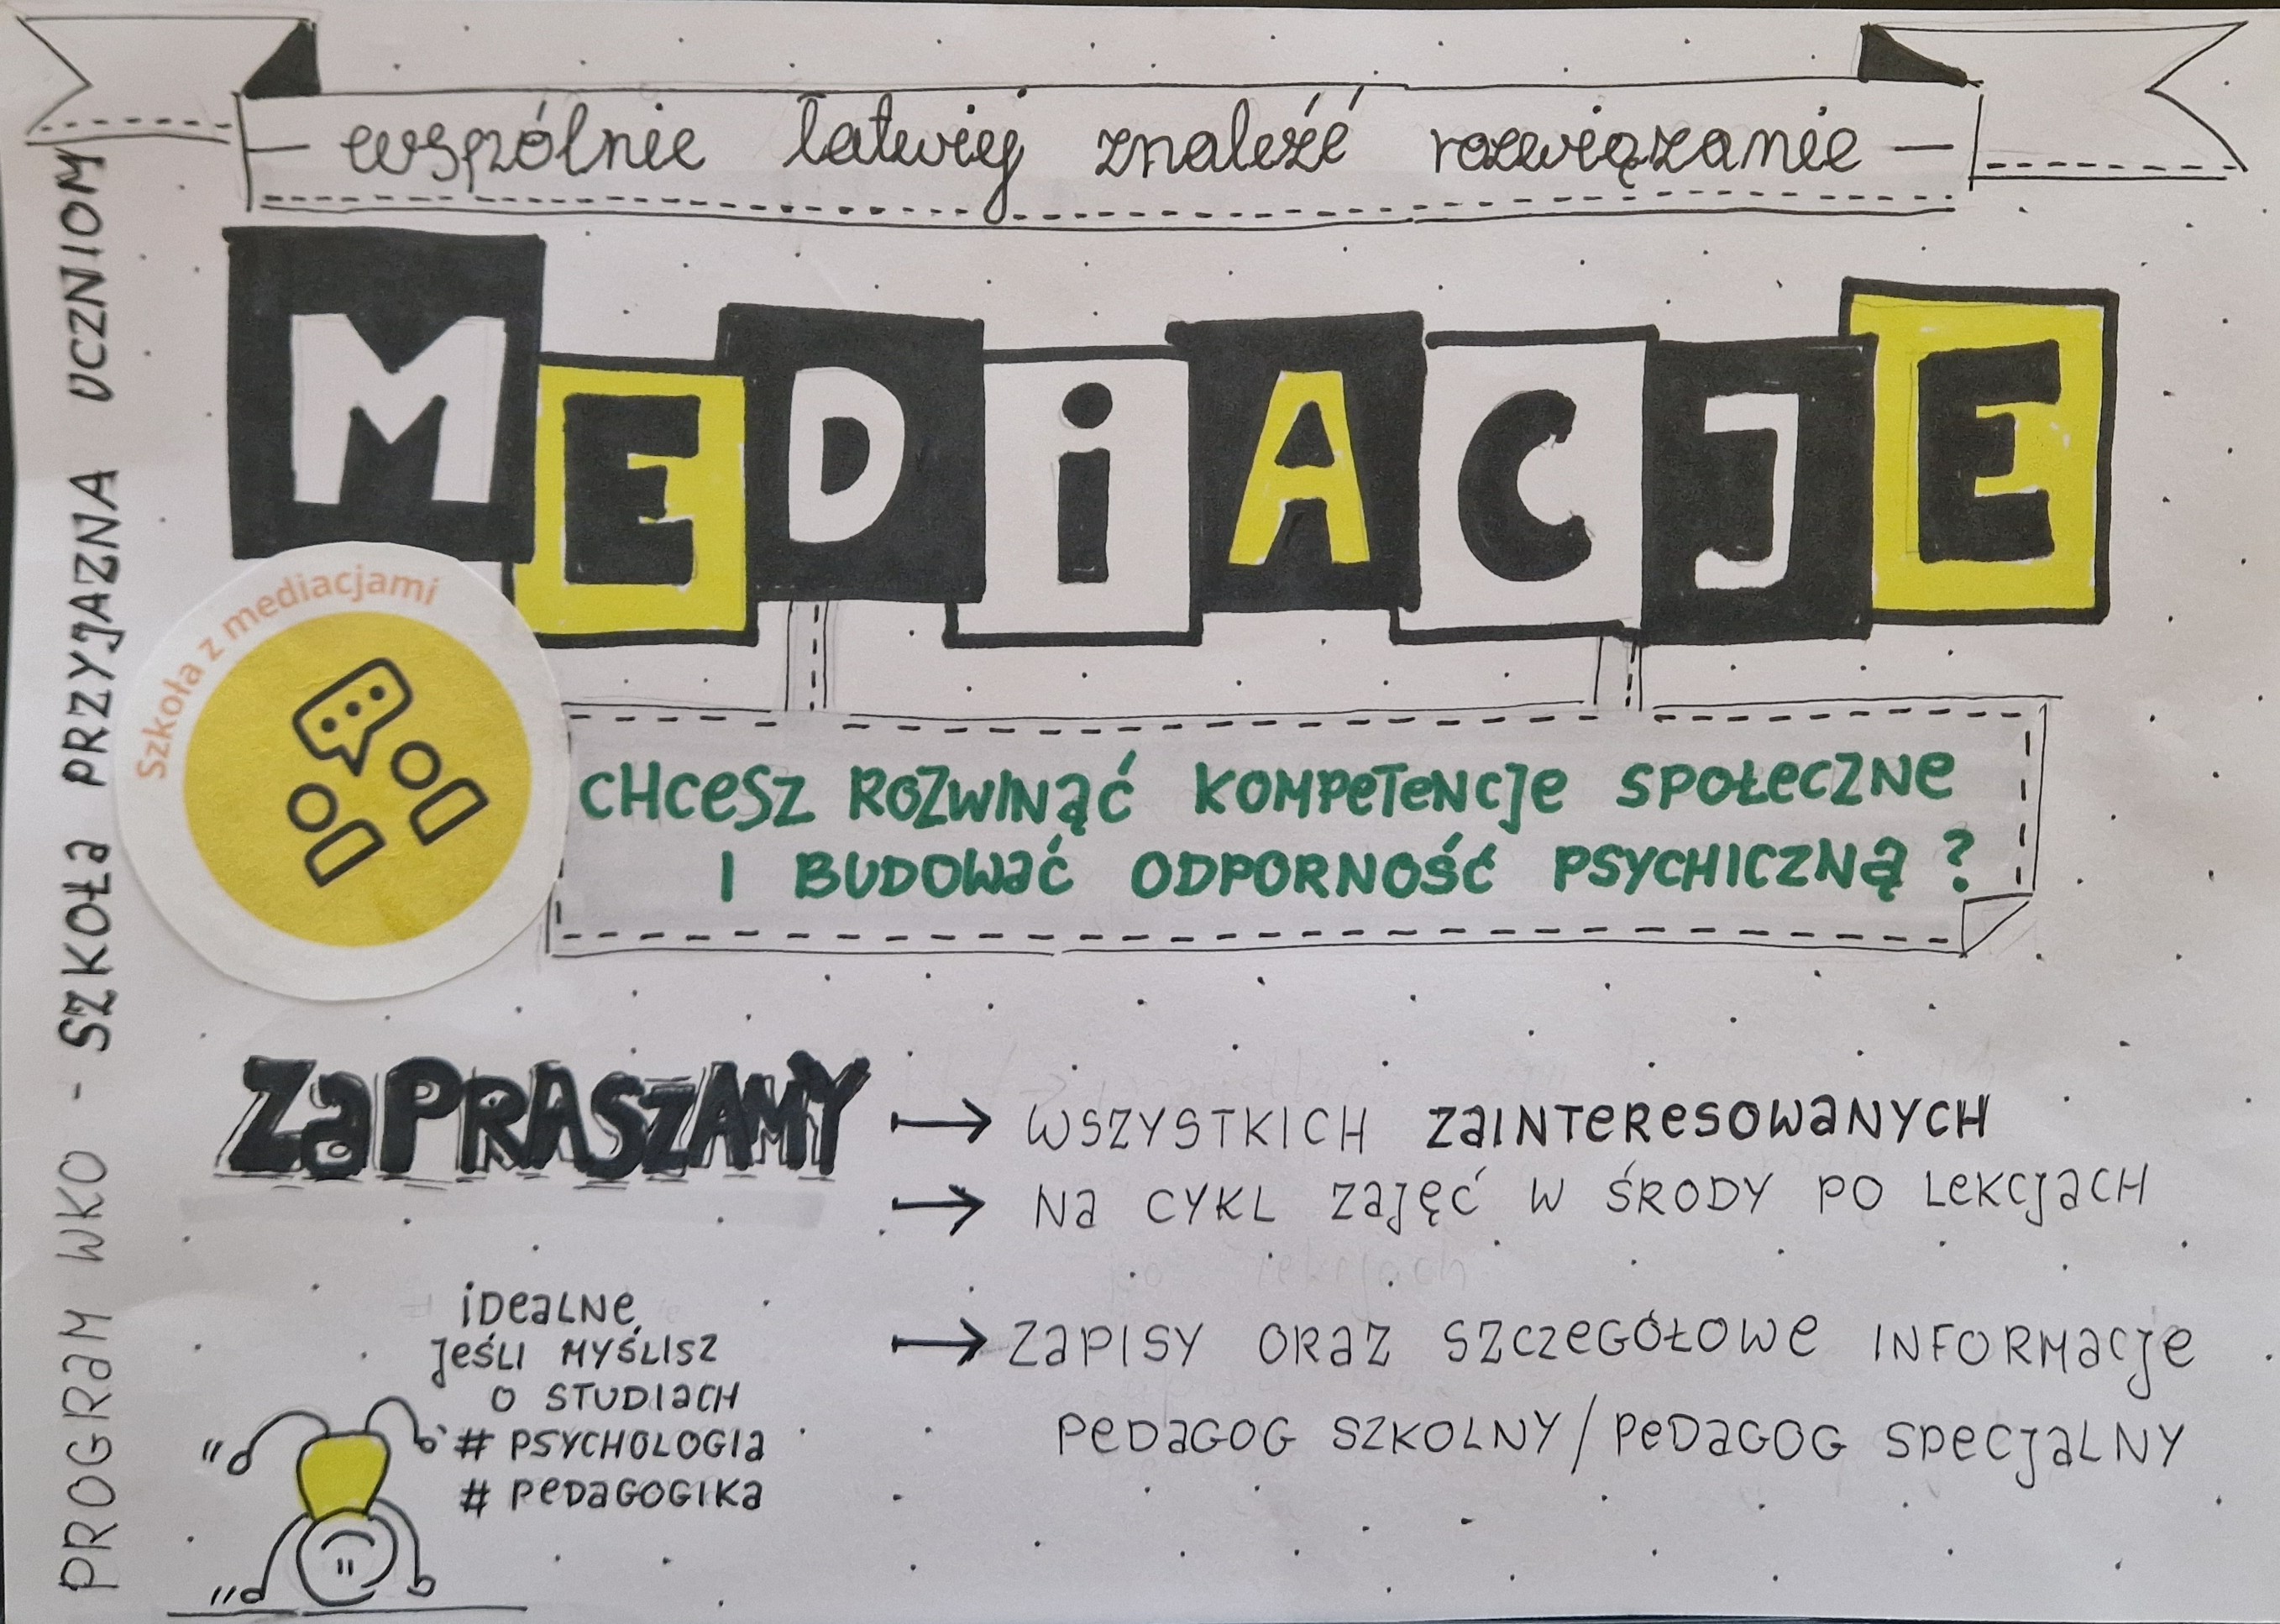 – wspólnie łatwiej znaleźć rozwiązanie –
MEDiACJE
Szkoła z mediacjami
CHCESZ ROZWINĄĆ KOMPETENCJE SPOŁECZNE
I BUDOWAĆ ODPORNOŚĆ PSYCHICZNĄ ?
ZAPRASZAMY
→ WSZYSTKICH ZAINTERESOWANYCH
→ NA CYKL ZAJĘĆ W ŚRODY PO LEKCJACH
→ ZAPISY ORAZ SZCZEGÓŁOWE INFORMACJE
PEDAGOG SZKOLNY/PEDAGOG SPECJALNY
iDEALNE,
JEŚLI MYŚLISZ
O STUDIACH
# PSYCHOLOGIA
# PEDAGOGIKA
PROGRAM WKO - SZKOŁA PRZYJAZNA UCZNIOM